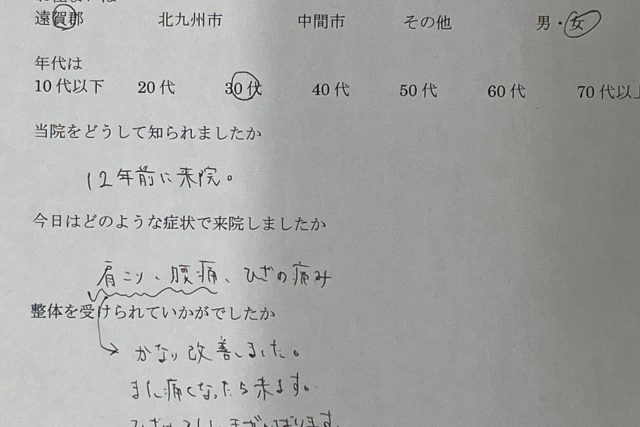 遠賀郡 北九州市 中間市 その他 男・女
年代は
10代以下 20代 30代 40代 50代 60代 70代以上
当院をどうして知られましたか
12年前に来院。
今日はどのような症状で来院しましたか
肩こり、腰痛、ひざの痛み
整体を受けられていかがでしたか
かなり改善しました。
また痛くなったら来ます。